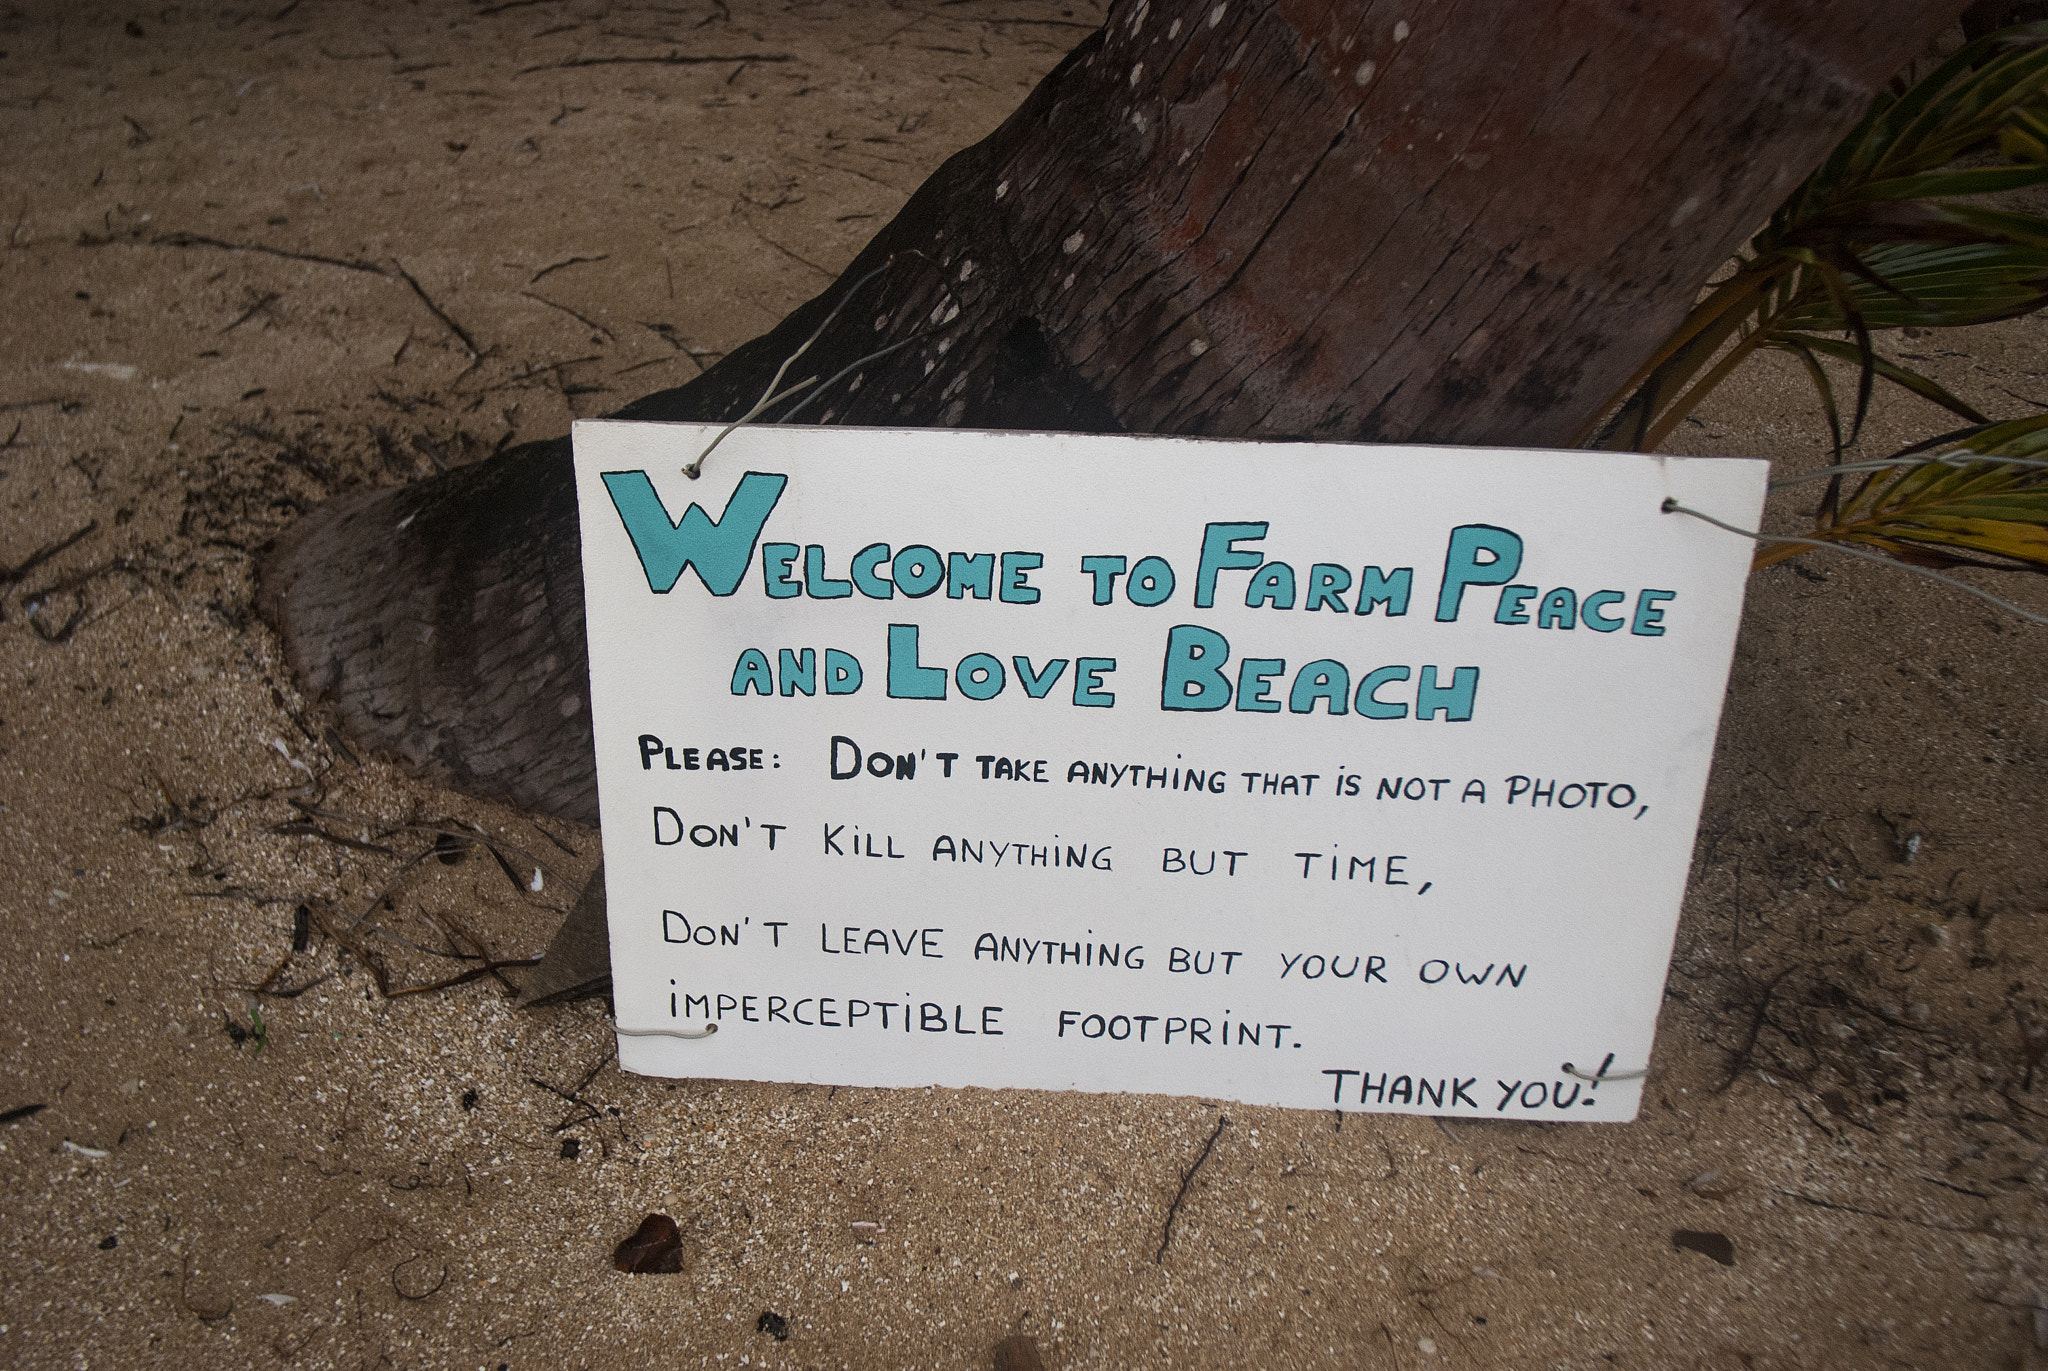 WELCOME TO FARM PEACE
AND LOVE BEACH
PLEASE: DON'T TAKE ANYTHING THAT iS NOT A PHOTO,
DON'T KiLL ANYTHiNG BUT TiME,
DON'T LEAVE ANYTHiNG BUT YOUR OWN
iMPERCEPTiBLE FOOTPRiNT.
THANK YOU!